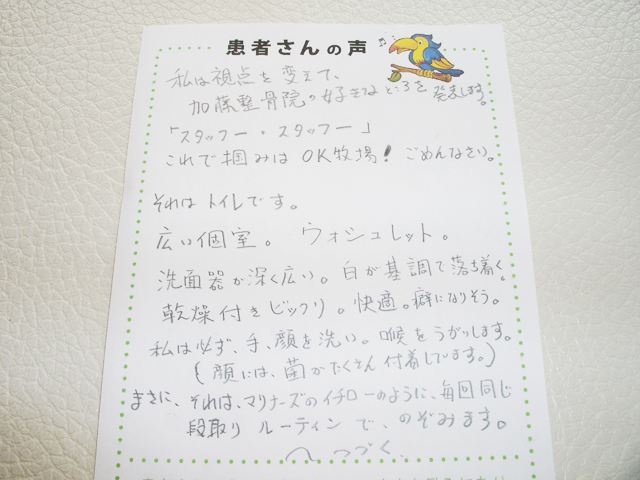 患者さんの声
私は視点を変えて、
加藤整骨院の好きなところを発表します。
「スタッフー・スタッフー」
これで掴みはOK牧場!ごめんなさい。
それはトイレです。
広い個室。ウォシュレット。
洗面器が深く広い。白が基調で落ち着く。
乾燥付きビックリ。快適。癖になりそう。
私は必ず、手、顔を洗い。喉をうがいします。
(顔には、菌がたくさん付着しています。)
まさに、それは、マリナーズのイチローのように、毎回同じ
段取りルーティンで、のぞみます。
つづく、